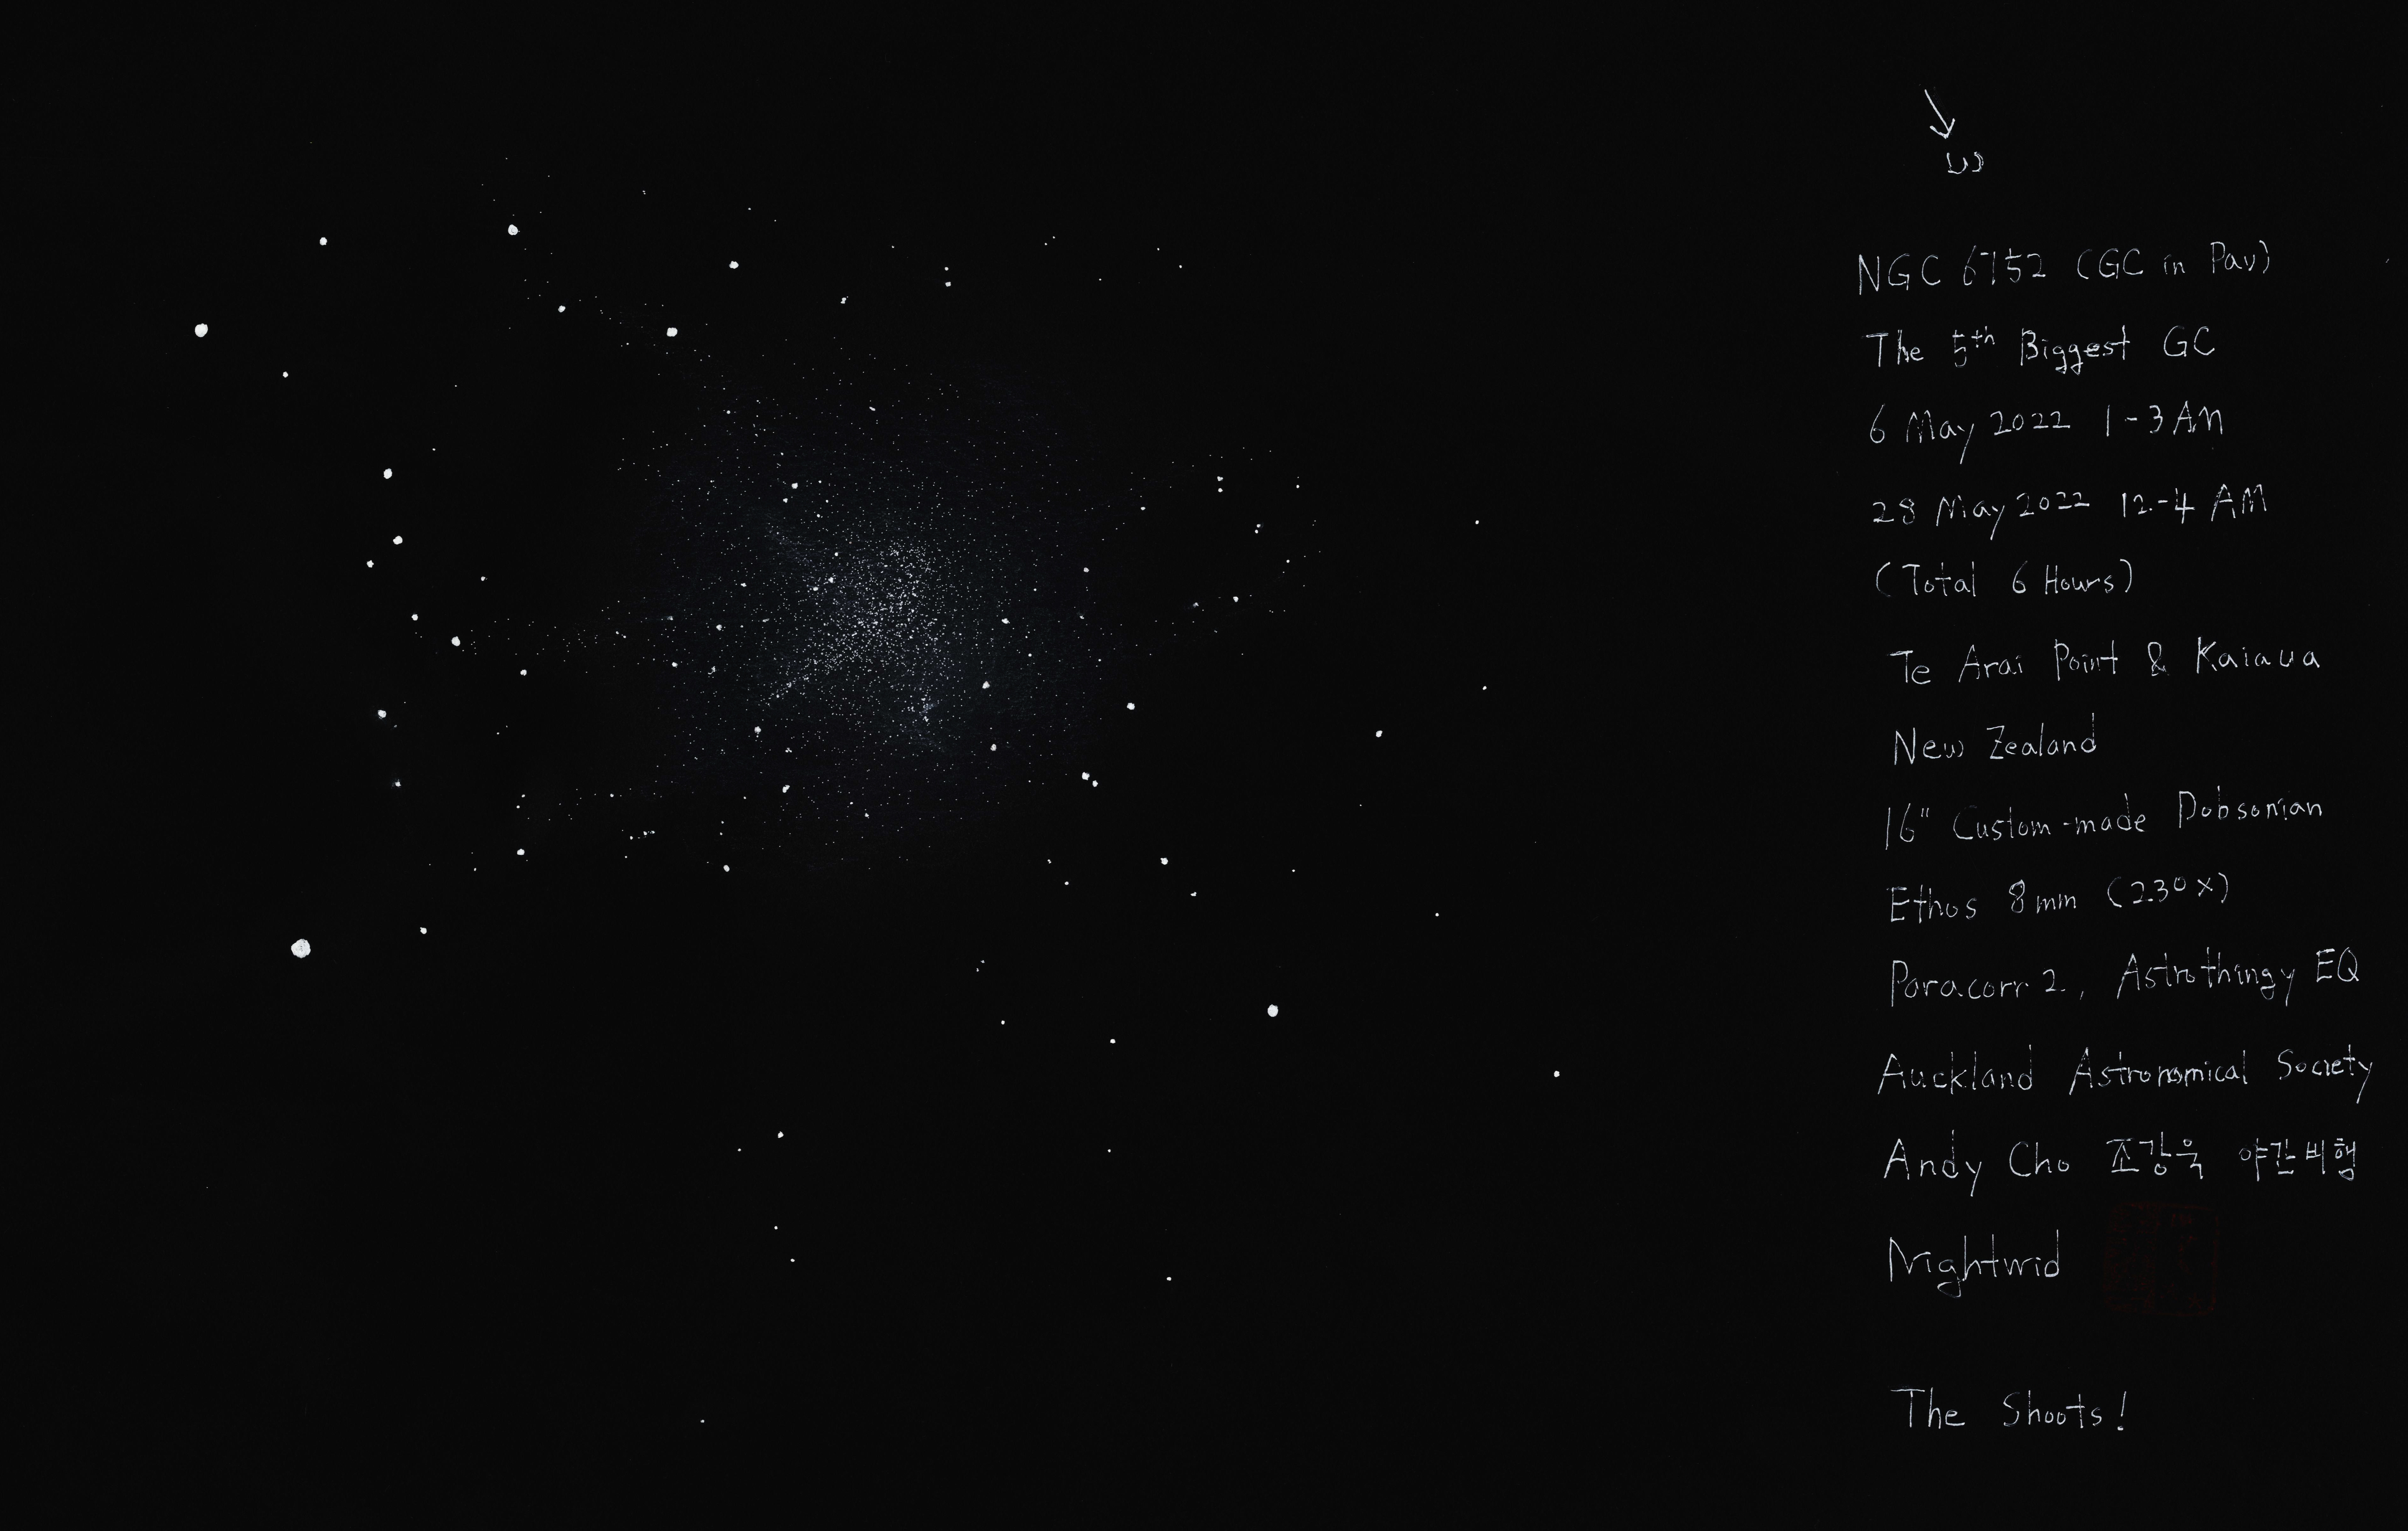 W
NGC 6752 (GC in Pav)
The 5th Biggest GC
6 May 2022 1-3 AM
28 May 2022 12-4 AM
(Total 6 Hours)
Te Arai Point & Kaiaua
New Zealand
16" Custom-made Dobsonian
Ethos 8mm (230x)
Paracorr 2, Astrothingy EQ
Auckland Astronomical Society
Andy Cho 조강욱 야간비행
Nightwid
The Shoots!